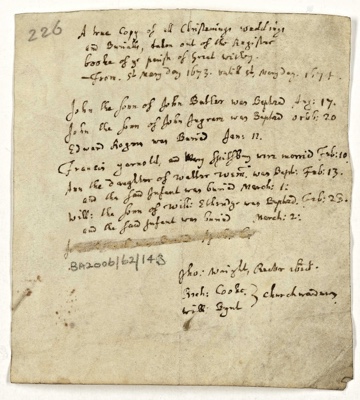 226
A true Copy of all Christenings weddings
and Burialls, taken out of the Register
booke of ye parish of Great witley
From St Mary day 1673. untill St Mary day. 1674.
John the sonn of John Butler was Baptized Aug: 17.
John the sonn of John Ingram was Baptized Octob: 20
Edward Rogers was Buried Jan: 11.
Francis yarnold, and Mary Spilsbury were married Feb: 10
Ann the daughter of Walter was Bapt: Feb: 13.
and the said Infant was buried March: 1:
Will: the sonn of Will: was Baptized. Feb: 23.
and the said Infant was buried March: 2:
BA2006/62/143
Jho: Waight, Rector ibid.
Rich: Cooke
Will: } Churchwardens